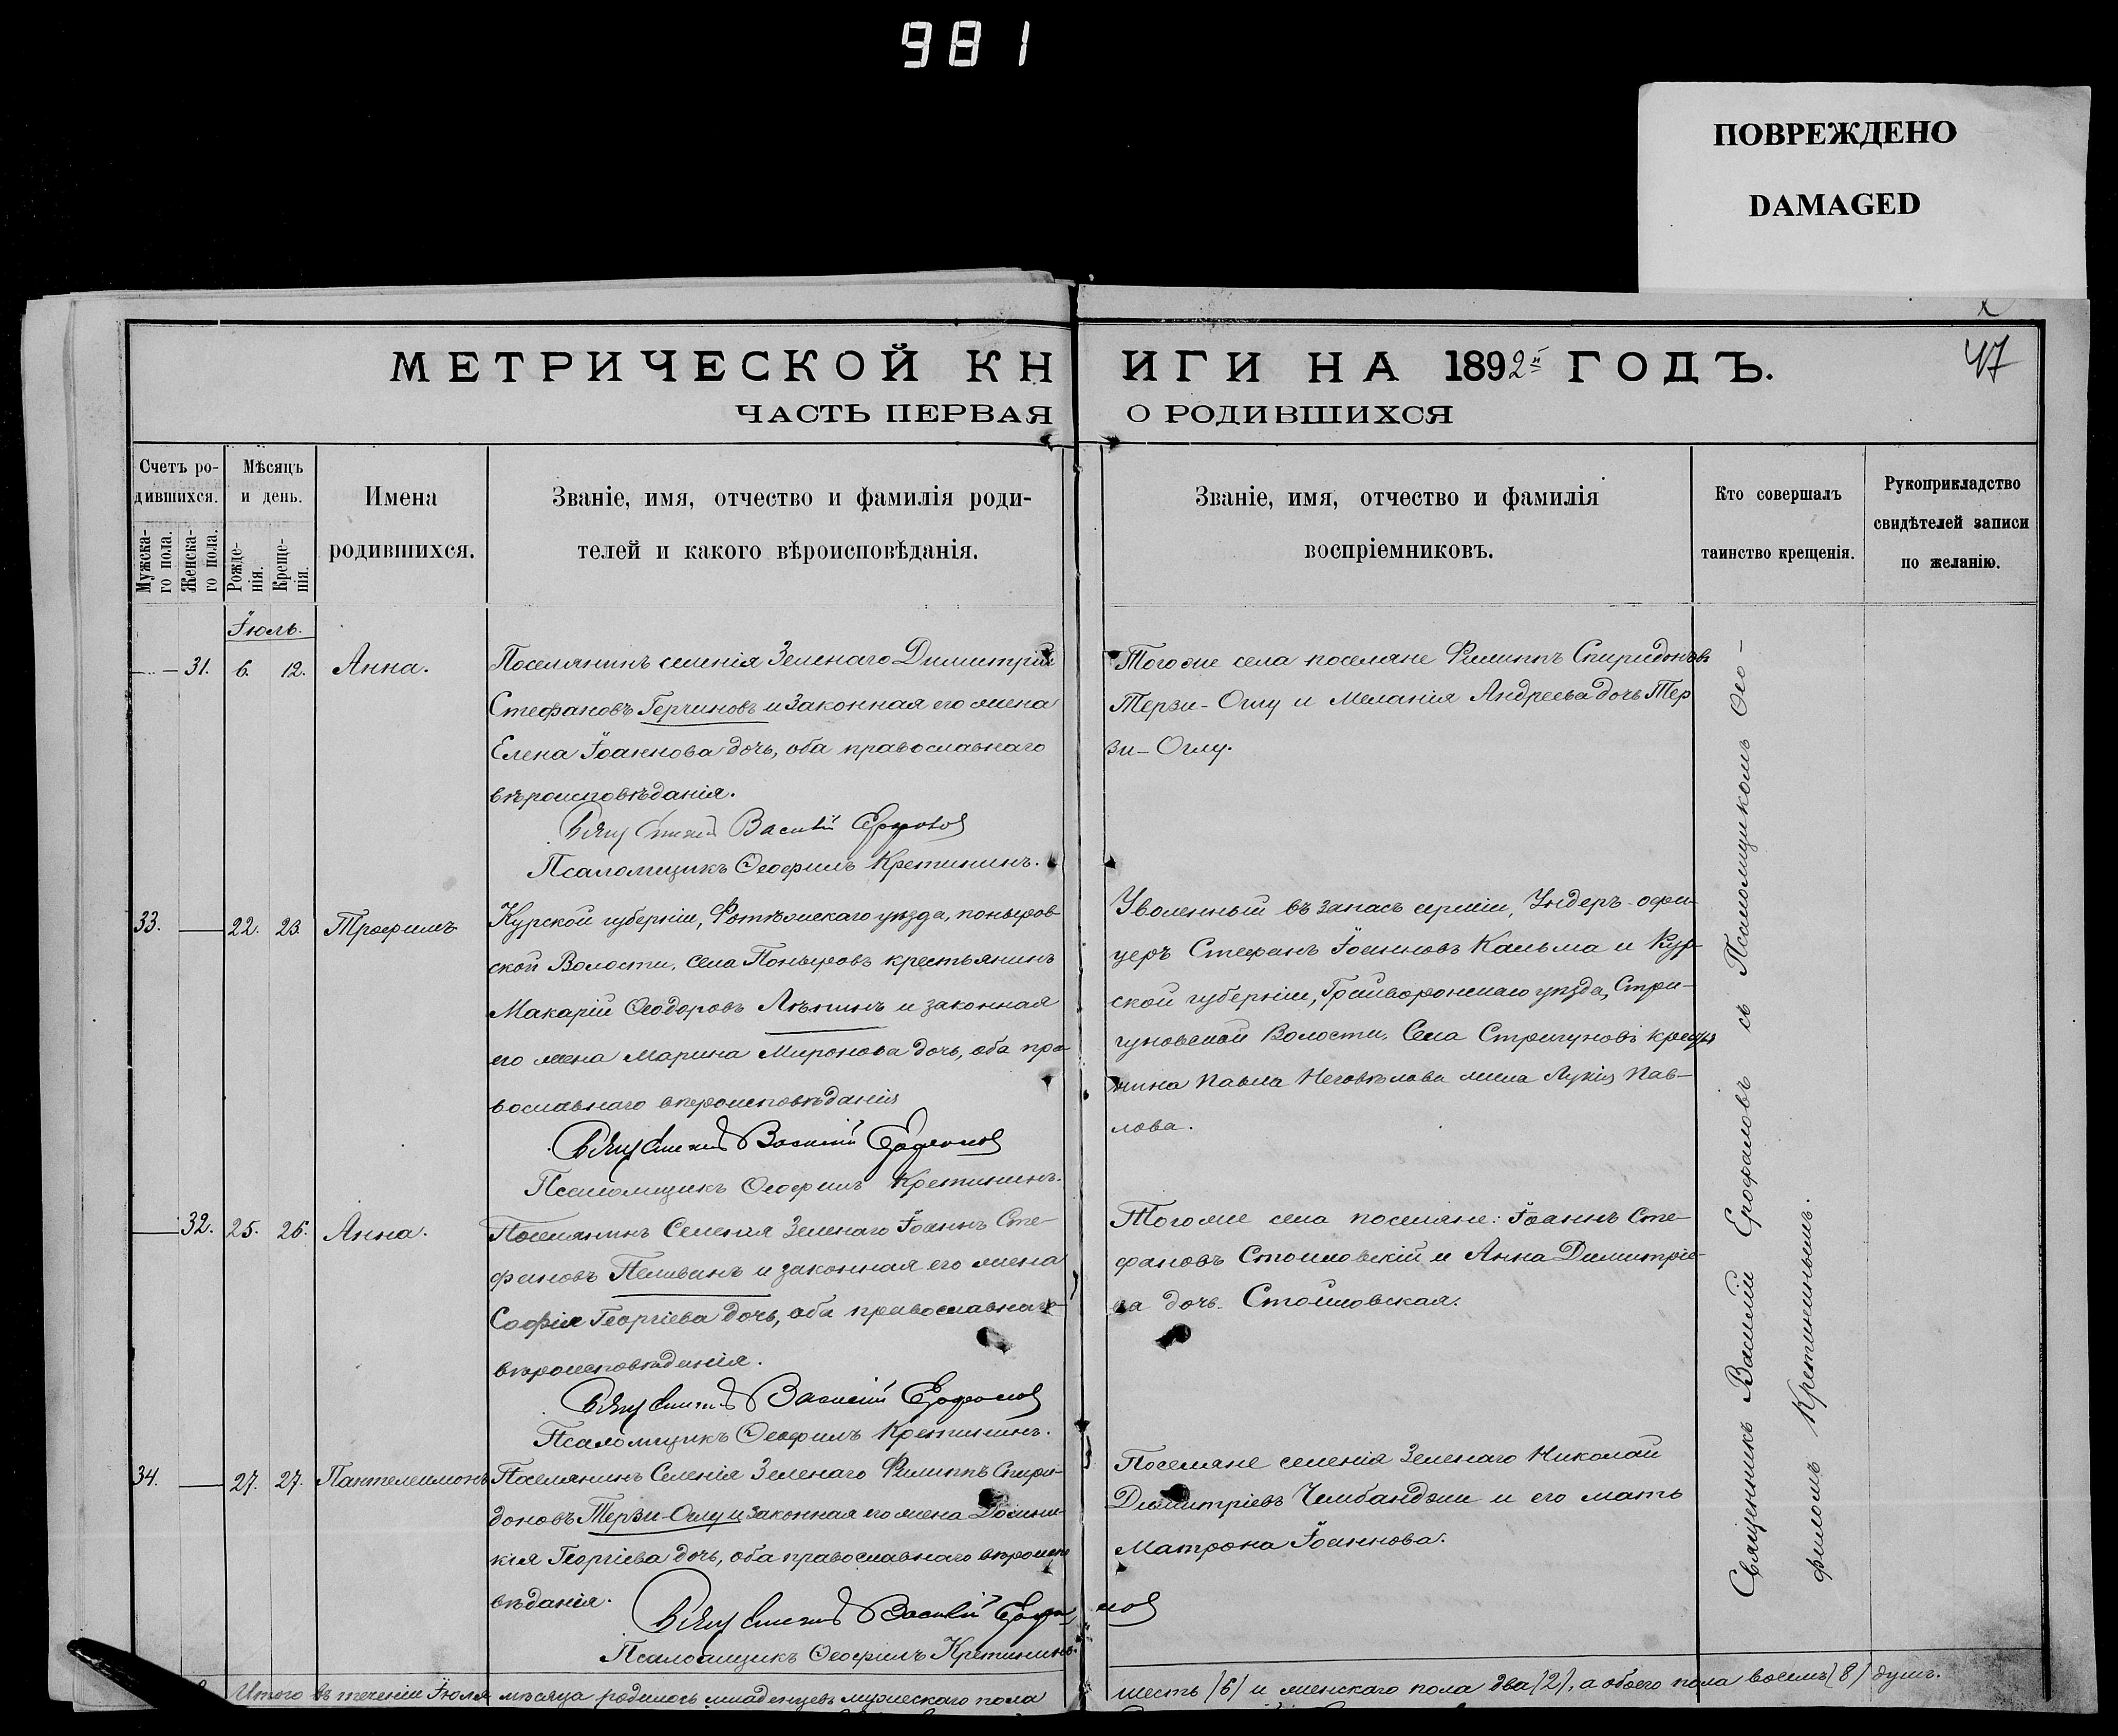 981
ПОВРЕЖДЕНО
DAMAGED
МЕТРИЧЕСКОЙ КНИГИ НА 1892й ГОДЪ.
47
ЧАСТЬ ПЕРВАЯ О РОДИВШИХСЯ
Счетъ ро-
дившихся.
Мужска-
го пола.
Женска-
го пола.
Мѣсяцъ
и день.
Рожде-
нія.
Креще-
нія.
Имена
родившихся.
Званіе, имя, отчество и фамилія роди-
телей и какого вѣроисповѣданія.
Званіе, имя, отчество и фамилія
воспріемниковъ.
Кто совершалъ
таинство крещенія.
Рукоприкладство
свидѣтелей записи
по желанію.
Іюль.
31. 6. 12. Анна.
Поселянинъ селенія Зеленаго Димитрій
Стефановъ Герчиновъ и законная его жена
Елена Іоаннова дочь, оба православнаго
вѣроисповѣданія.
Василій
Псаломщикъ Ѳеофилъ Кретининъ.
Тогоже села поселяне Филиппъ Спиридоновъ
Терзи-Оглу и Меланія Андреева дочь Тер
зи-Оглу.
33. 22. 23. Трофимъ
Курской губерніи, уѣзда, поныров-
ской Волости, села Поныровъ крестьянинъ
Макарій Ѳеодоровъ Лѣпинъ и законная
его жена Марина Миронова дочь, оба пра-
вославнаго вѣроисповѣданія
Василій
Псаломщикъ Ѳеофилъ Кретининъ.
Уволенный въ запасъ арміи, Ундеръ-офи-
церъ Стефанъ Іоанновъ Кальма и Кур-
ской губерніи, Грайворонскаго уѣзда, Стри-
гуновской Волости, Села Стригуновъ крестья
нина Павла жена Лукія Пав-
лова.
32. 25. 26. Анна.
Поселянинъ Селенія Зеленаго Іоаннъ Сте-
фановъ Пеливанъ и законная его жена
Софія Георгіева дочь, оба православнаго
вѣроисповѣданія.
Василій
Псаломщикъ Ѳеофилъ Кретининъ.
Тогоже села поселяне: Іоаннъ Сте-
фановъ Стоиловскій и Анна Димитріе-
ва дочь Стоиловская.
34. 27. 27. Пантелеимонъ
Поселянинъ Селенія Зеленаго Филиппъ Спири-
доновъ Терзи-Оглу и законная его жена Домни-
кія Георгіева дочь, оба православнаго вѣроиспо
вѣданія.
Василій
Псаломщикъ Ѳеофилъ Кретининъ.
Поселяне селенія Зеленаго Николай
Димитріевъ Чимбанджи и его мать
Матрона Іоаннова.
Священникъ Василій Ерофаловъ съ Псаломщикомъ Ѳео-
филомъ Кретининымъ.
Итого въ теченіи Іюля мѣсяца родилось младенцевъ мужескаго пола шесть /6/ и женскаго пола два /2/, а обоего пола восемь /8/ душъ.